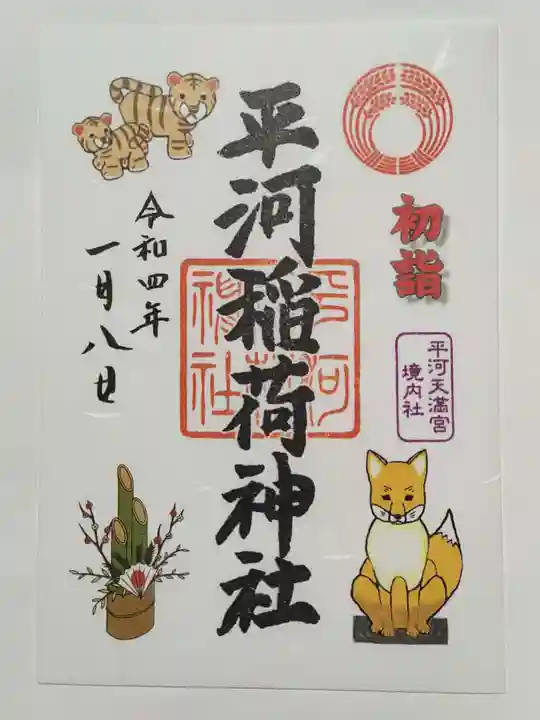 初詣
平河天満宮
境内社
平河稲荷神社
平河稲荷神社
令和四年
一月八日